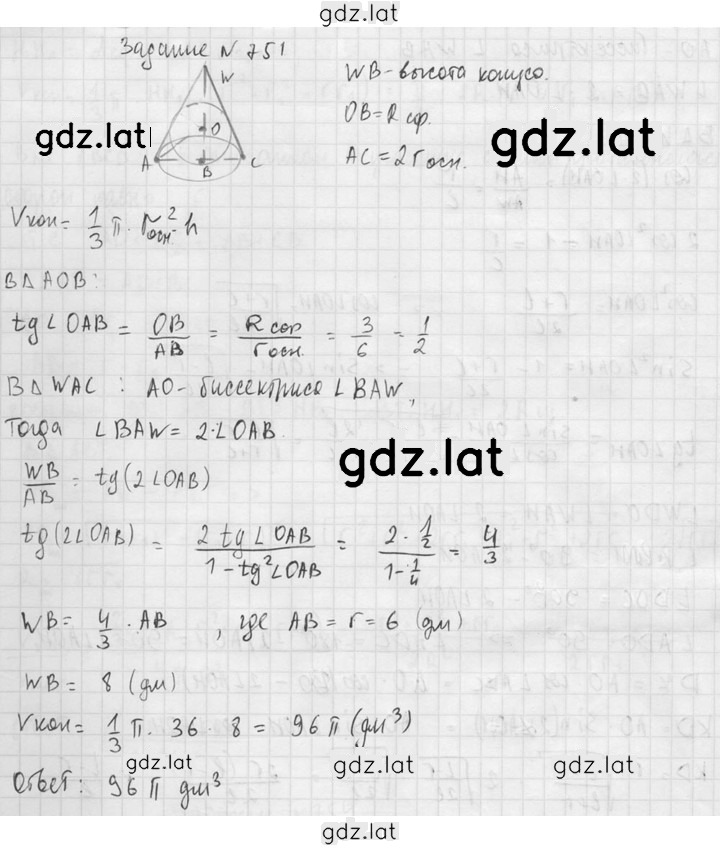 gdz.lat
Задание N 751
W
O
A
B
C
gdz.lat
WB - высота конуса.
OB = R сф.
AC = 2 r осн.
gdz.lat
Vкон = 1/3 π · r осн.² h
В Δ AOB:
tg∠OAB = OB/AB = R сф/r осн. = 3/6 = 1/2
В Δ WAC : AO - биссектриса ∠BAW,
Тогда ∠BAW = 2·∠OAB.
gdz.lat
WB/AB = tg(2∠OAB)
tg(2∠OAB) = 2 tg∠OAB/1 - tg²∠OAB = 2 · 1/2/1 - 1/4 = 4/3
WB = 4/3 · AB , где AB = r = 6 (дм)
WB = 8 (дм)
Vкон = 1/3 π · 36 · 8 = 96 π (дм³)
gdz.lat gdz.lat gdz.lat
Ответ: 96 π дм³
gdz.lat